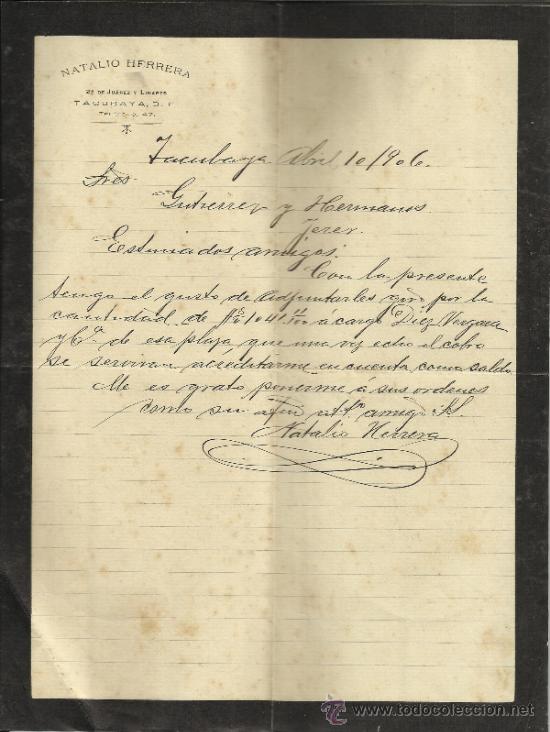 NATALIO HERRERA
2ª DE JUÁREZ Y LINARES
TACUBAYA, D. F.
Tacubaya Abril 10/906.
Sres.
Gutierrez y Hermanos.
Jerez.
Estimados amigos:
Con la presente
tengo el gusto de adjuntarles giro por la
cantidad de 1041 á cargo Diez Vergara
y Cª. de esa plaza, que una vez echo el cobro
se serviran acreditarme en cuenta como saldo.
Me es grato ponerme á sus ordenes
como su afmo atto. amigo
Natalio Herrera
todocoleccion
www.todocoleccion.net